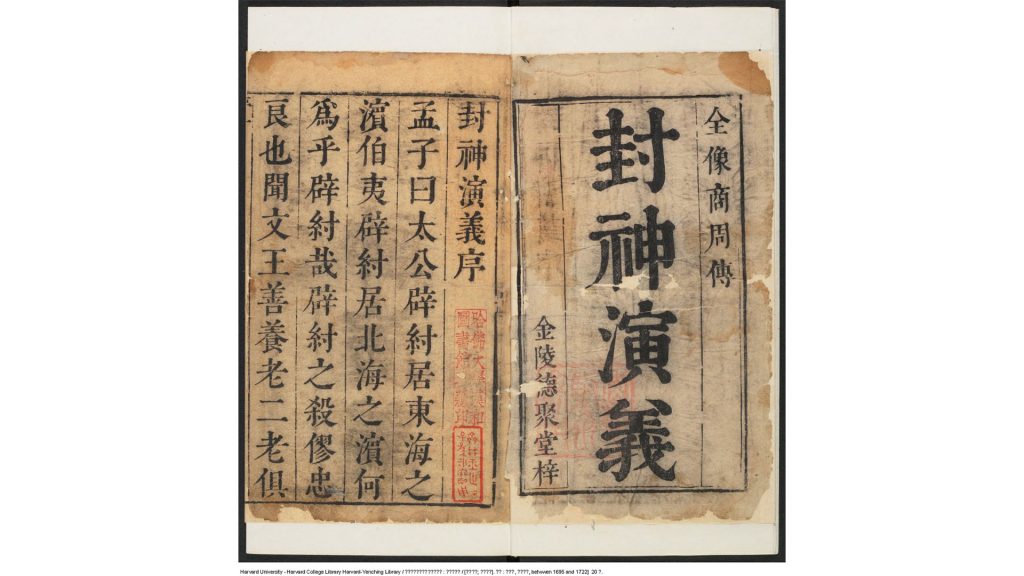 全像商周傳
封神演義
金陵德聚堂梓
封神演義序
孟子曰太公辟紂居東海之
濱伯夷辟紂居北海之濱何
爲乎辟紂哉辟紂之殺僇忠
良也聞文王善養老二老俱
哈佛大學漢和
圖書館珍藏印
Harvard University - Harvard College Library Harvard-Yenching Library / ????????????? : ????? /[????, ????]. ?? : ???, ????, between 1695 and 1722]. 20 ?.